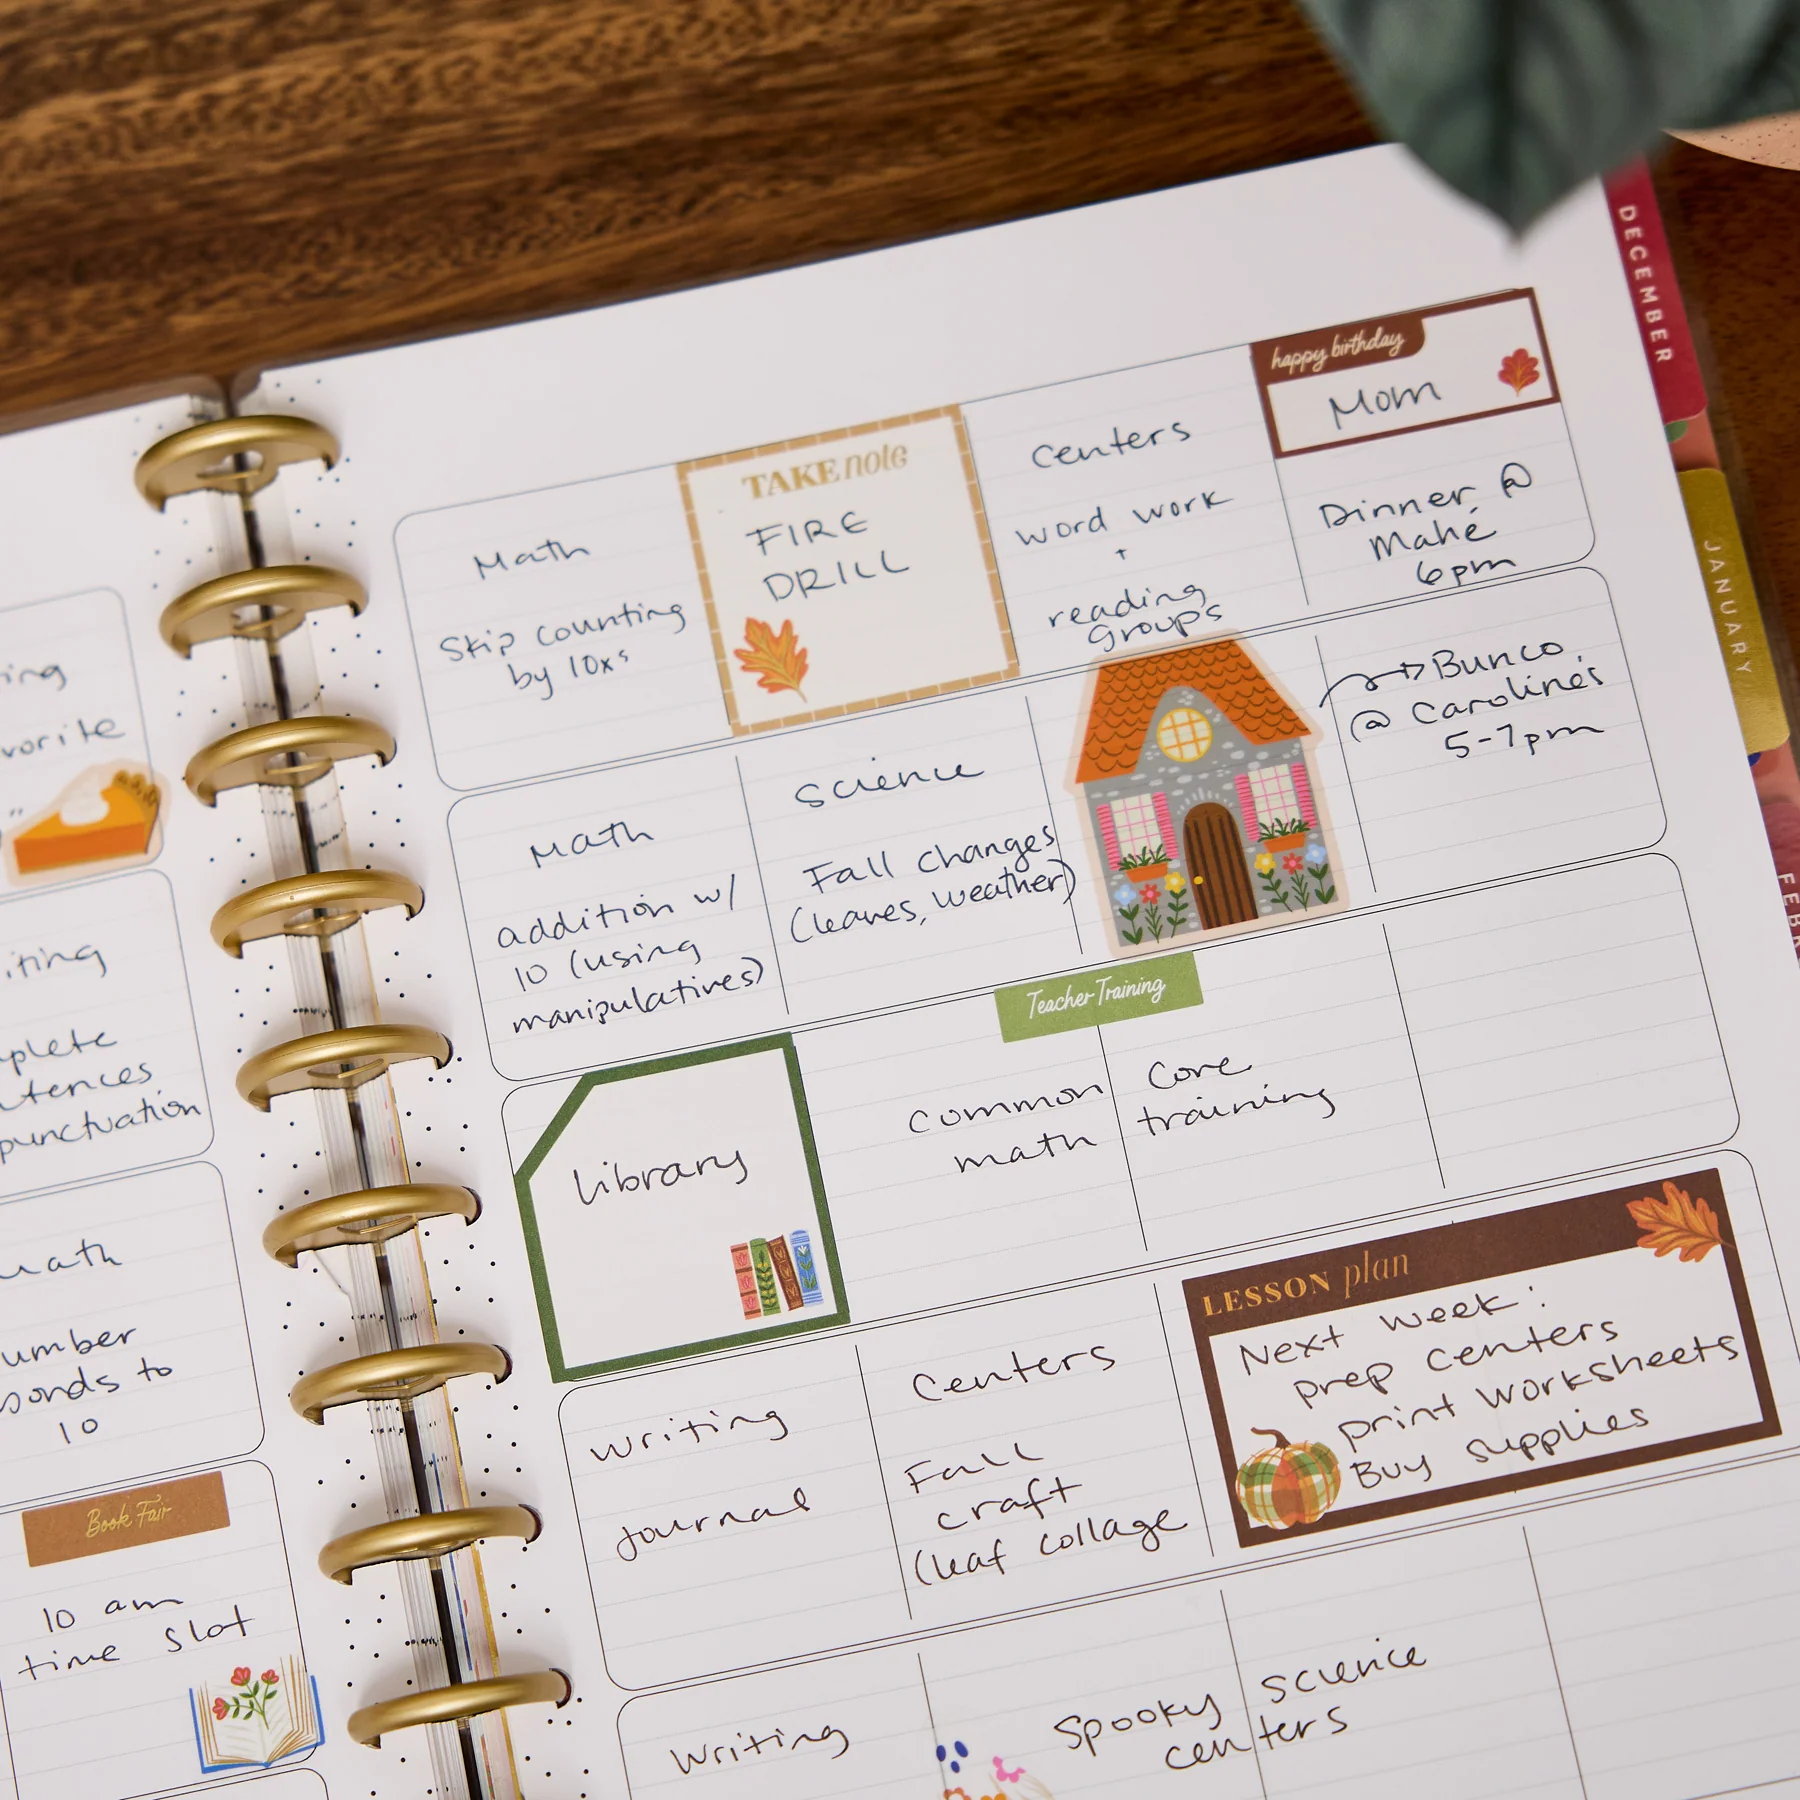 DECEMBER
JANUARY
happy birthday
Mom
Dinner @
Mahé
6pm
centers
word work
+
reading
groups
TAKE note
FIRE
DRILL
Math
Skip counting
by 10xs
Bunco
@ Caroline's
5-7pm
Science
Fall changes
(leaves, weather)
Math
addition w/
10 (using
manipulatives)
Teacher Training
Common Core
math training
Library
LESSON plan
Next week:
prep centers
print worksheets
Buy supplies
Centers
Fall
craft
(leaf collage
Writing
Journal
Writing
Spooky science
centers
punctuation
Book Fair
10 am
time slot
to
10